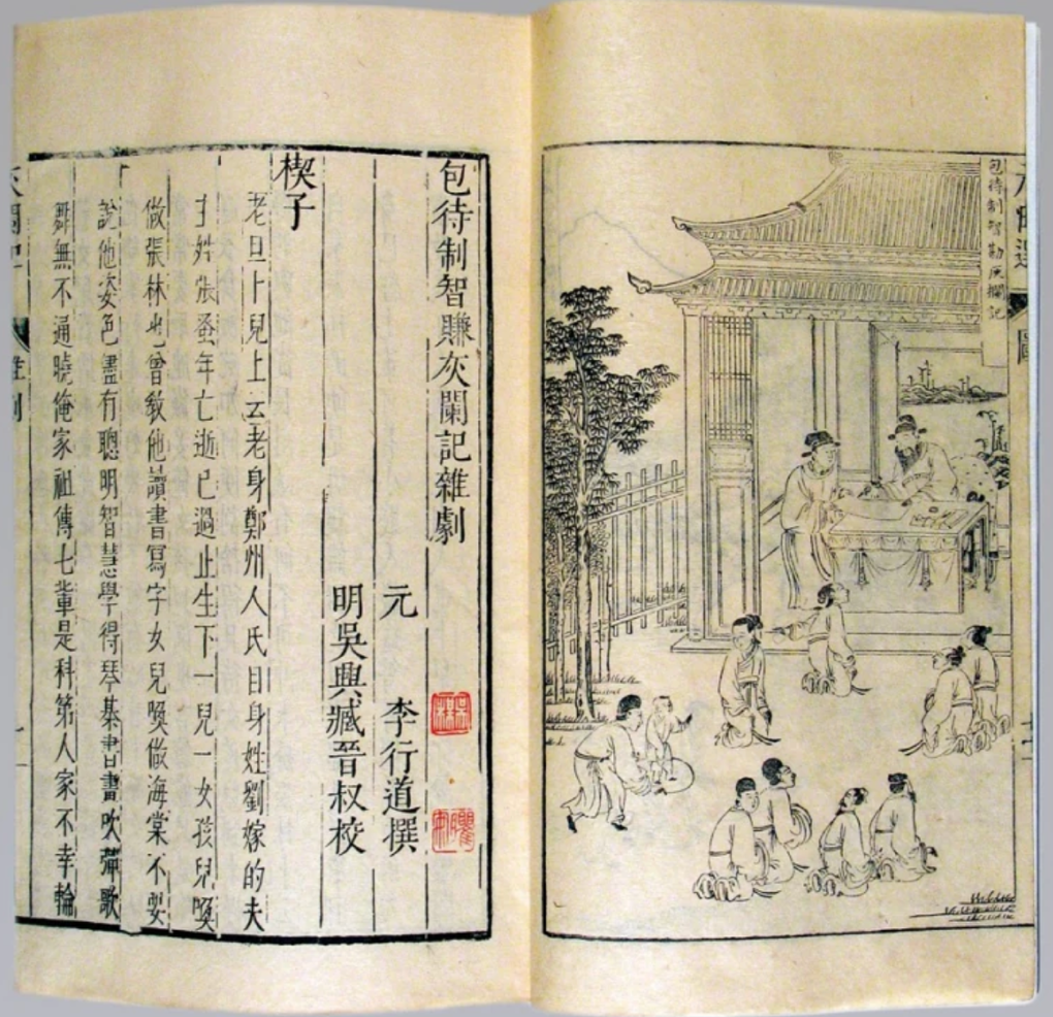 包待制智勘灰欄記
包待制智賺灰闌記雜劇
元 李行道撰
明吳興臧晉叔校
楔子
老旦卜兒上云老身鄭州人氏自身姓劉嫁的夫
主姓張蚤年亡逝已過止生下一兒一女孩兒喚
做張林也曾敎他讀書寫字女兒喚做海棠不要
說他姿色儘有聰明智慧學得琴棊書畫吹彈歌
舞無不通曉俺家祖傳七輩是科第人家不幸輪